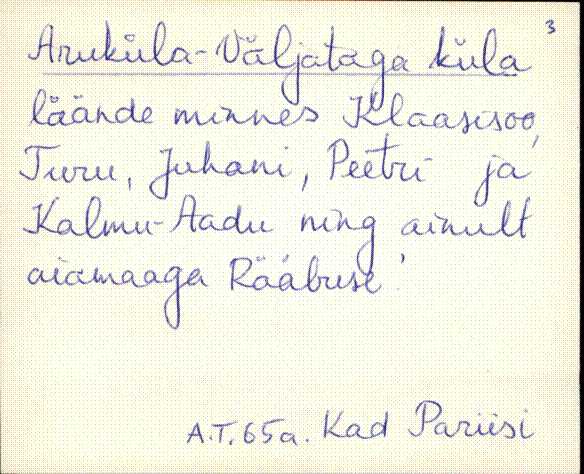 3
Aruküla-Väljataga küla
läände minnes Klaasisoo,
Turu, Juhani, Peetri ja
Kalmu-Aadu ning ainult
aiamaaga Rääbuse!
A.T. 65a. Kad Pariisi